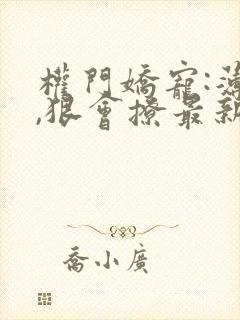 權門嬌寵:薄
,狠會撩最新
喬小廣